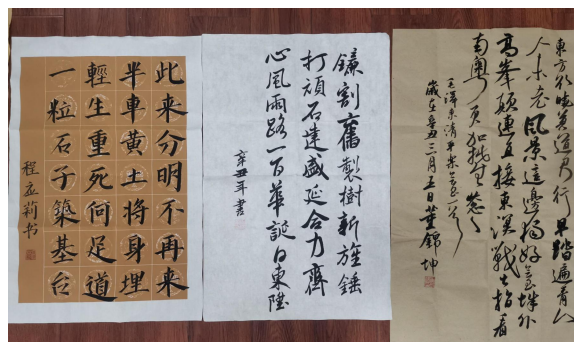 此来分明不再来
半車黄土将身埋
輕生重死何足道
一粒石子築基台
程孟莉书
鐮割舊製樹新旌錘
打頑石達盛延合力齊
心風雨路一百華誕日東陞
辛丑年書
東方欲曉莫道君行早踏遍青山
人未老风景這邊獨好會昌城外
高峯顛連直接東溟戰士指看
南粤更加鬱鬱葱葱
毛澤東清平樂會昌
歲在辛丑三月五日董錦坤